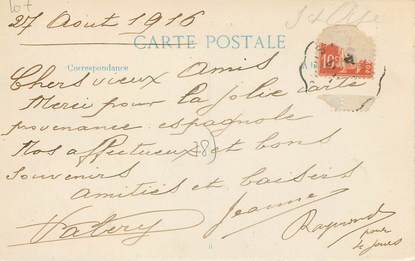 lot
27 Aout 1916
S & Oise
CARTE POSTALE
Correspondance
10c
a
Chers vieux Amis
Merci pour la jolie carte
provenance espagnole
Nos affectueux et bons
souvenirs
(78)
amitiés et baisers
Jeanne
Valery
Raymond
pour
4 jours